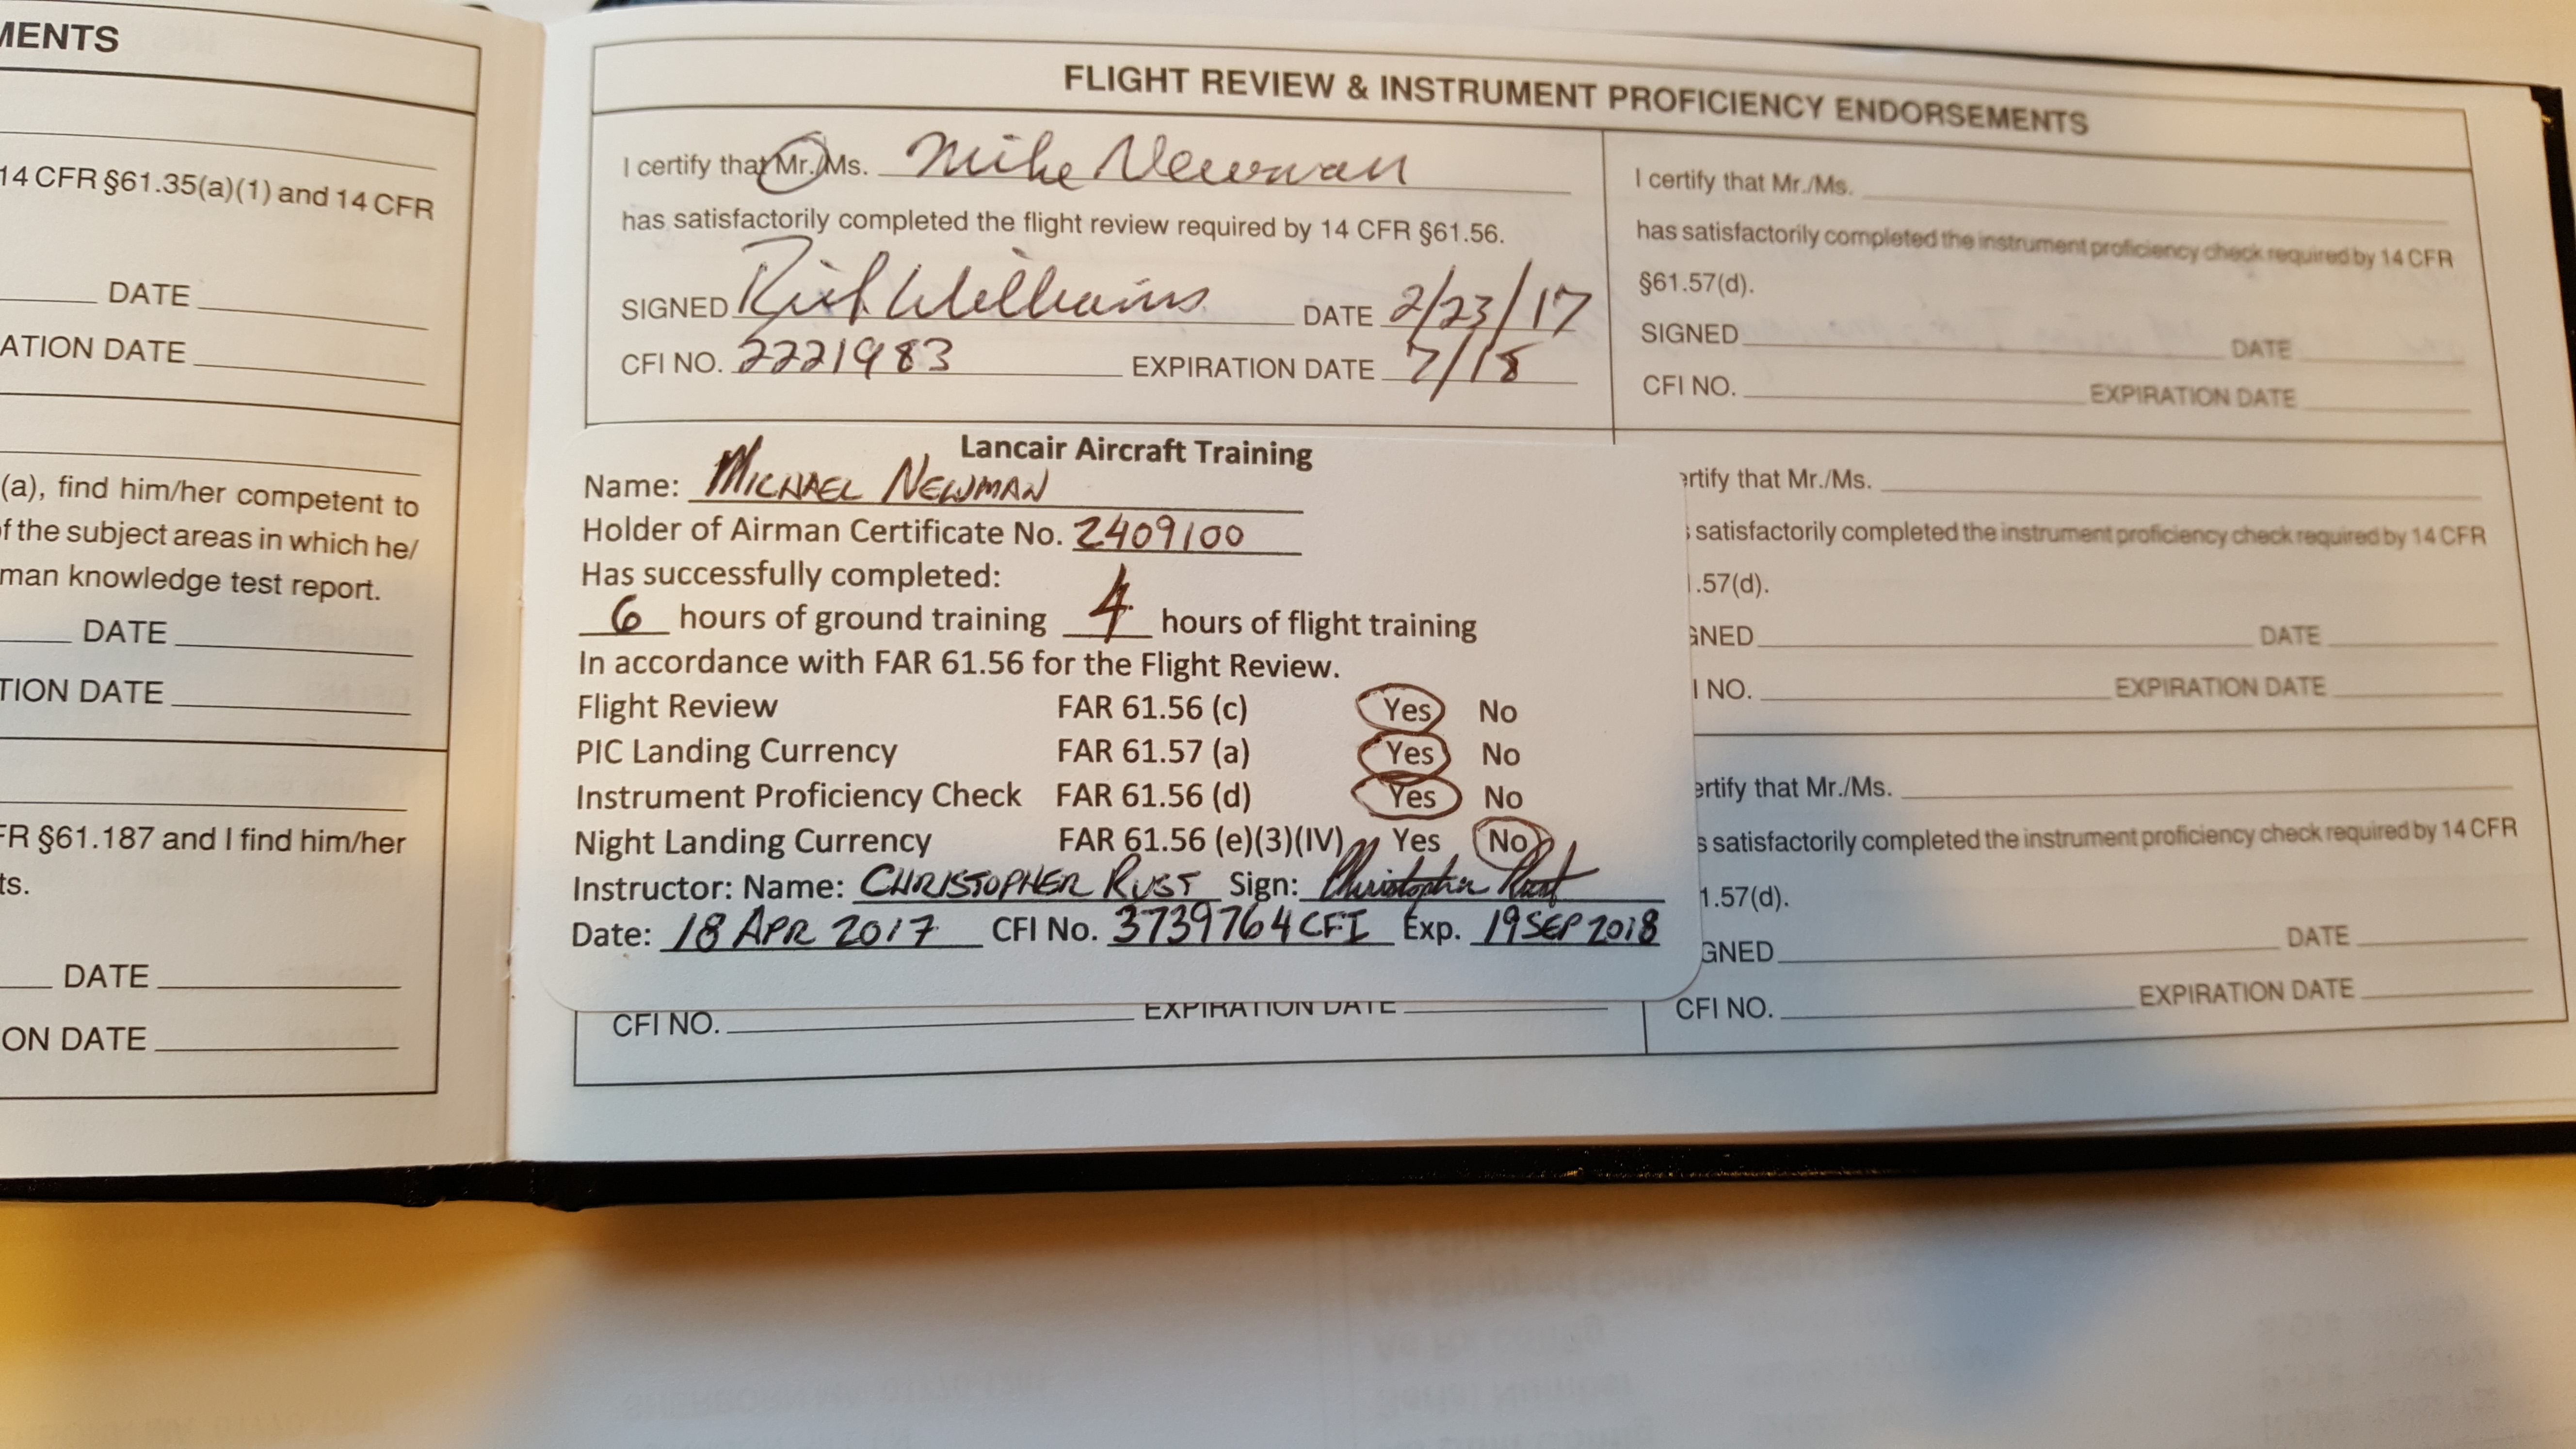 MENTS
14 CFR §61.35(a)(1) and 14 CFR
DATE
ATION DATE
(a), find him/her competent to
f the subject areas in which he/
man knowledge test report.
DATE
TION DATE
FR §61.187 and I find him/her
ts.
DATE
ON DATE
FLIGHT REVIEW & INSTRUMENT PROFICIENCY ENDORSEMENTS
I certify that Mr./Ms. Mike Newman
has satisfactorily completed the flight review required by 14 CFR §61.56.
SIGNED Rich Williams DATE 2/23/17
CFI NO. 2221983 EXPIRATION DATE 7/18
Lancair Aircraft Training
Name: MICHAEL NEWMAN
Holder of Airman Certificate No. 2409100
Has successfully completed:
6 hours of ground training 4 hours of flight training
In accordance with FAR 61.56 for the Flight Review.
Flight Review FAR 61.56 (c) Yes No
PIC Landing Currency FAR 61.57 (a) Yes No
Instrument Proficiency Check FAR 61.56 (d) Yes No
Night Landing Currency FAR 61.56 (e)(3)(IV) Yes No
Instructor: Name: CHRISTOPHER RUST Sign: Christopher Rust
Date: 18 APR 2017 CFI No. 3739764CFI Exp. 19 SEP 2018
CFI NO. EXPIRATION DATE
I certify that Mr./Ms.
has satisfactorily completed the instrument proficiency check required by 14 CFR
§61.57(d).
SIGNED DATE
CFI NO. EXPIRATION DATE
ertify that Mr./Ms.
satisfactorily completed the instrument proficiency check required by 14 CFR
.57(d).
GNED DATE
I NO. EXPIRATION DATE
ertify that Mr./Ms.
s satisfactorily completed the instrument proficiency check required by 14 CFR
1.57(d).
GNED DATE
CFI NO. EXPIRATION DATE